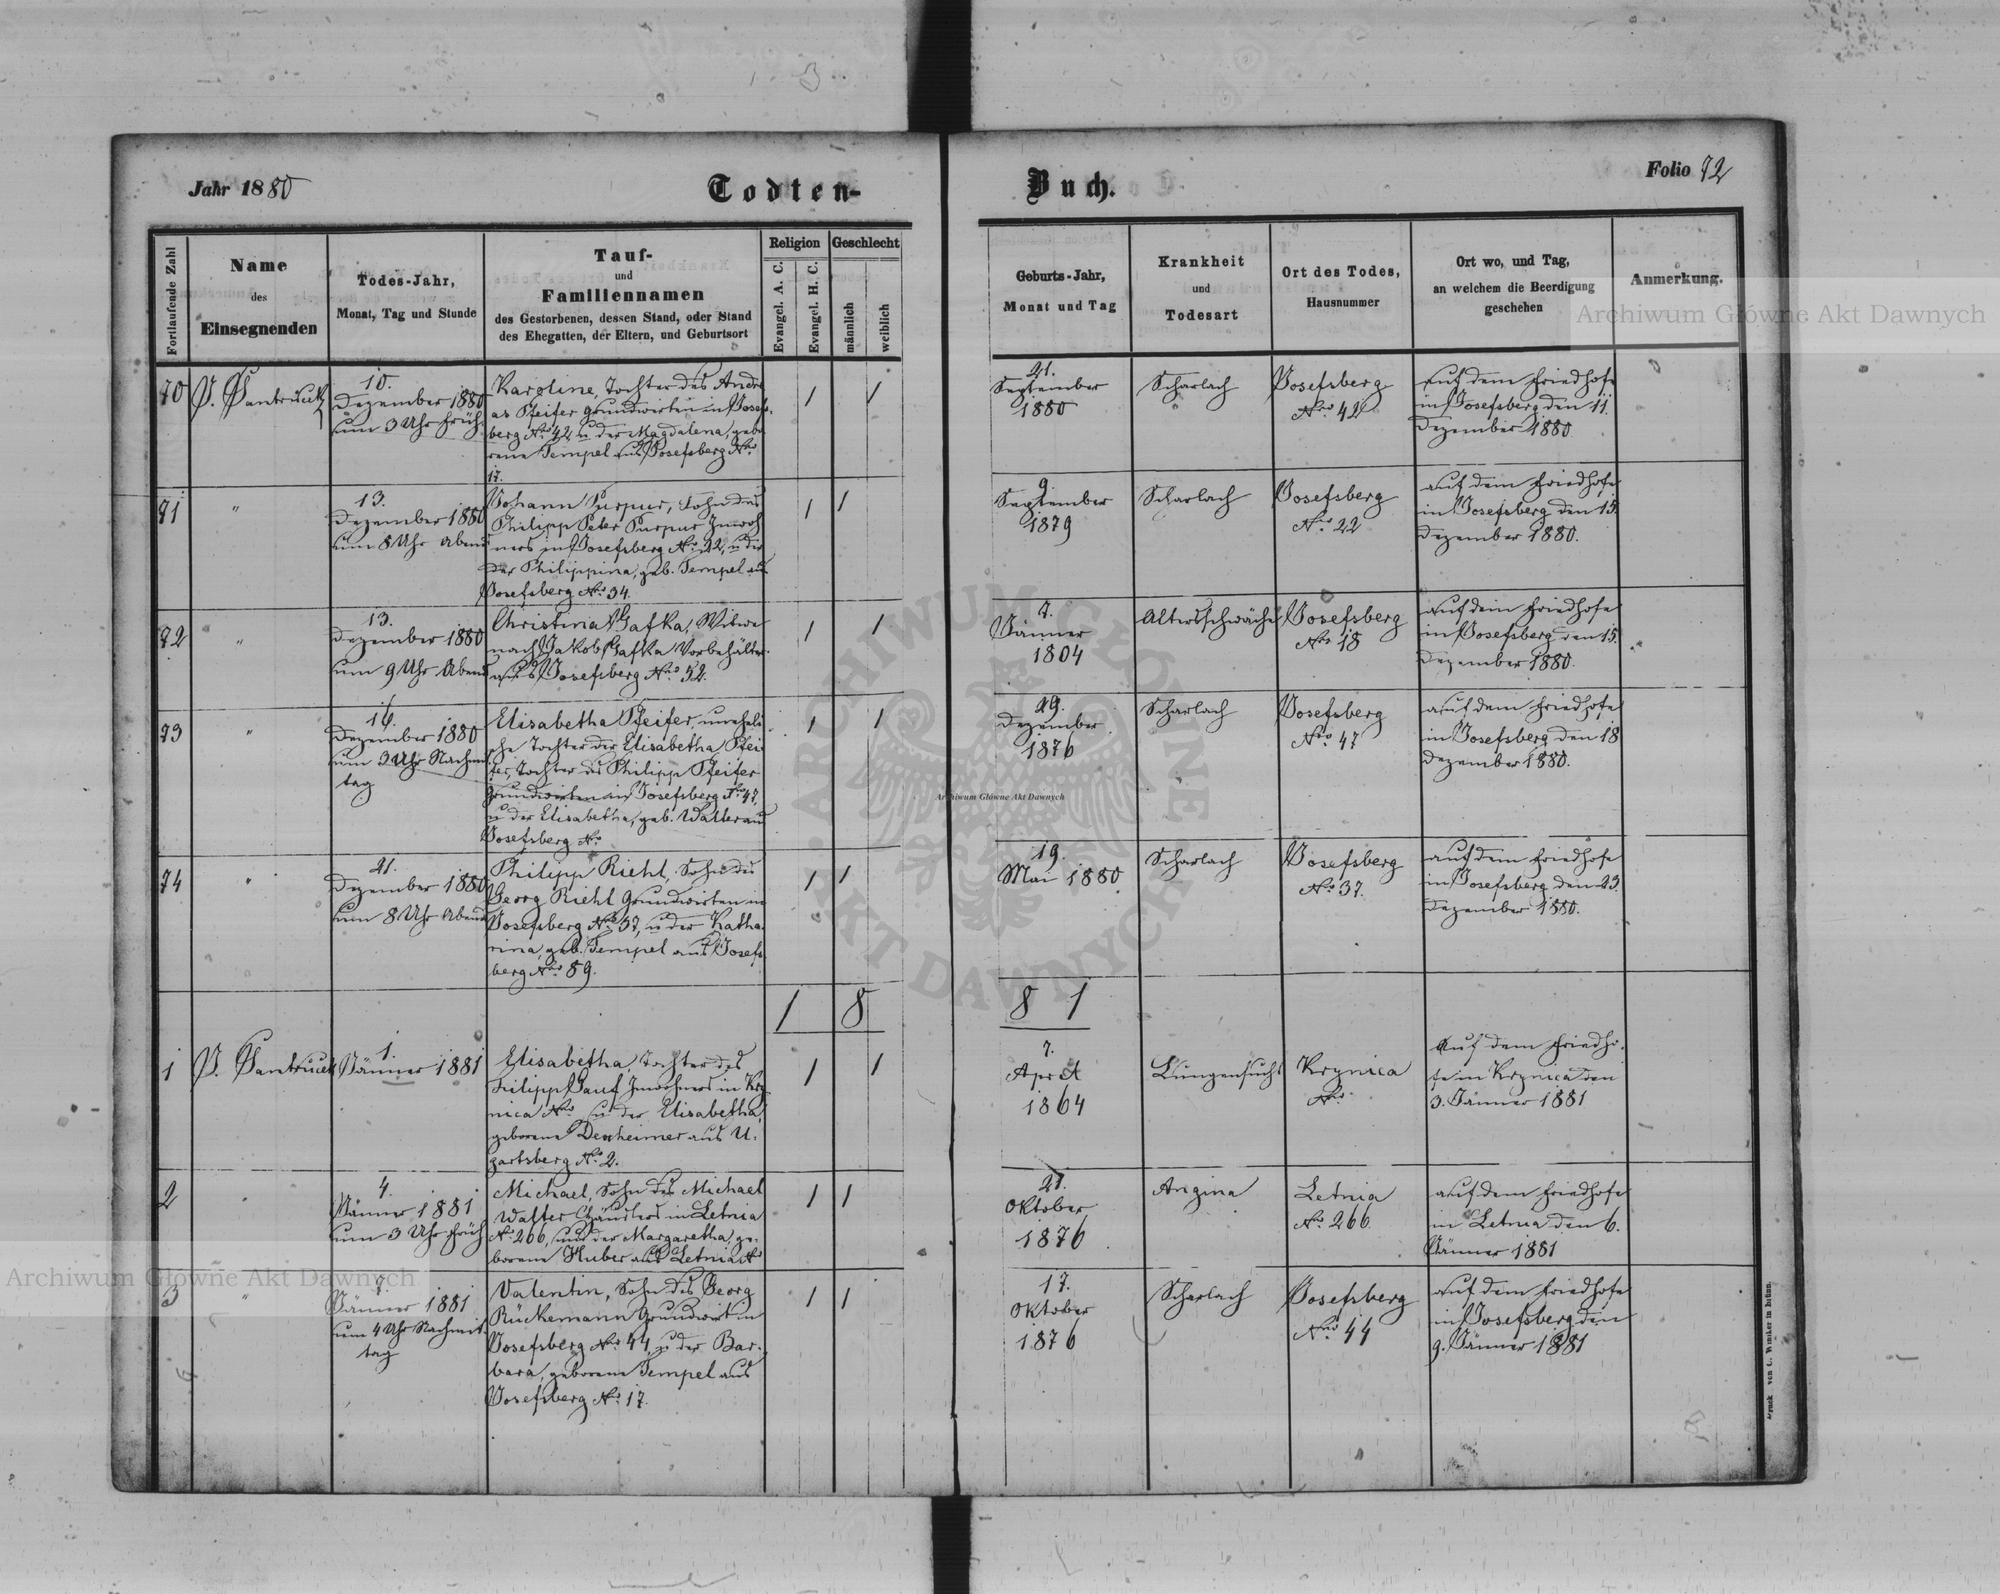 Jahr 1880
Todten-
Buch.
Folio 72
Fortlaufende Zahl
Name
des
Einsegnenden
Todes-Jahr,
Monat, Tag und Stunde
Tauf-
und
Familiennamen
des Gestorbenen, dessen Stand, oder Stand
des Ehegatten, der Eltern, und Geburtsort
Religion
Evangel. A. C.
Evangel. H. C.
Geschlecht
männlich
weiblich
Geburts-Jahr,
Monat und Tag
Krankheit
und
Todesart
Ort des Todes,
Hausnummer
Ort wo, und Tag,
an welchem die Beerdigung
geschehen
Anmerkung.
70
10.
Dezember 1880
um 3 Uhr Früh
Karoline, Tochter des Andre-
as Pfeifer Grundwirten in Josefs-
berg Nro 42, u der Magdalena, gebo-
rene Tempel aus Josefsberg Nro
17.
1
1
21.
September
1880
Scharlach
Josefsberg
Nro 42
auf dem Friedhofe
in Josefsberg den 11.
Dezember 1880
71
"
13.
Dezember 1880
um 8 Uhr Abend
Johann Purpur, Sohn des
Philipp Peter Purpur Inwoh
ners in Josefsberg Nro 22, u der
der Philippina, geb. Tempel aus
Josefsberg Nro 34.
1
1
9.
September
1879
Scharlach
Josefsberg
Nro 22
auf dem Friedhofe
in Josefsberg den 15.
Dezember 1880.
72
"
13.
Dezember 1880
um 9 Uhr Abend
Christina Gafka, Witwe
nach Jakob Gafka Vorbehälter
aus Josefsberg Nro 52.
1
1
7.
Jänner
1804
Altersschwäche
Josefsberg
Nro 18
auf dem Friedhofe
in Josefsberg den 15.
Dezember 1880.
73
"
16.
Dezember 1880
um 3 Uhr Nachmit
tag
Elisabetha Pfeifer, uneheli
che Tochter der Elisabetha Pfei
fer, Tochter des Philipp Pfeifer
Grundwirten in Josefsberg Nro 47,
u der Elisabetha, geb. Walter aus
Josefsberg Nro
1
1
29.
Dezember
1876
Scharlach
Josefsberg
Nro 47
auf dem Friedhofe
in Josefsberg den 18
Dezember 1880.
74
"
21.
Dezember 1880
um 8 Uhr Abend
Philipp Riehl, Sohn des
Georg Riehl Grundwirten in
Josefsberg Nro 37, u der Katha-
rina, geb. Tempel aus Josefs-
berg Nro 89.
1
1
19.
Mai 1880
Scharlach
Josefsberg
Nro 37.
auf dem Friedhofe
in Josefsberg den 23.
Dezember 1880.
1
8
8 1
1
1.
Jänner 1881
Elisabetha, Tochter des
Filipp Inwohners in Kry
nica Nro u der Elisabetha
geborene Dexheimer aus U-
gartsberg Nro 2.
1
1
7.
April
1864
Lungensucht
Krynica
Nro
Auf dem Friedho-
fe in Krynica den
3. Jänner 1881
2
"
4.
Jänner 1881
um 3 Uhr Früh
Michael, Sohn des Michael
Walter in Letnia
Nro 266, und der Margaretha, ge-
borene Huber aus Letnia Nro
1
1
21.
Oktober
1876
Angina
Letnia
Nro 266
auf dem Friedhofe
in Letnia den 6.
Jänner 1881
3
"
7.
Jänner 1881
um 4 Uhr Nachmit-
tag
Valentin, Sohn des Georg
Rückemann Grundwirt in
Josefsberg Nro 44, u der Bar-
bara, geborene Tempel aus
Josefsberg Nro 17.
1
1
17.
Oktober
1876
Scharlach
Josefsberg
Nro 44
auf dem Friedhofe
in Josefsberg den
9. Jänner 1881
Archiwum Główne Akt Dawnych
Archiwum Główne Akt Dawnych
Archiwum Główne Akt Dawnych
ARCHIWUM GŁÓWNE AKT DAWNYCH